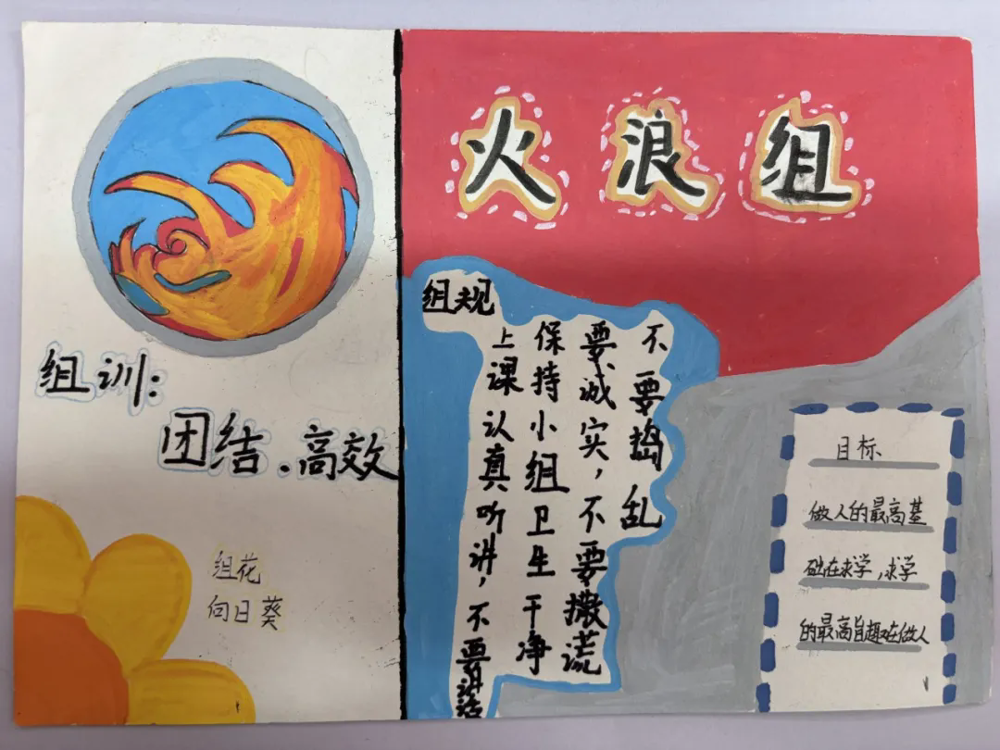 火浪组
组训：
团结、高效
组花
向日葵
组规
上课认真听讲，不要讲话
保持小组卫生干净
要诚实，不要撒谎
不要捣乱
目标
做人的最高基
础在求学，求学
的最高旨趣在做人